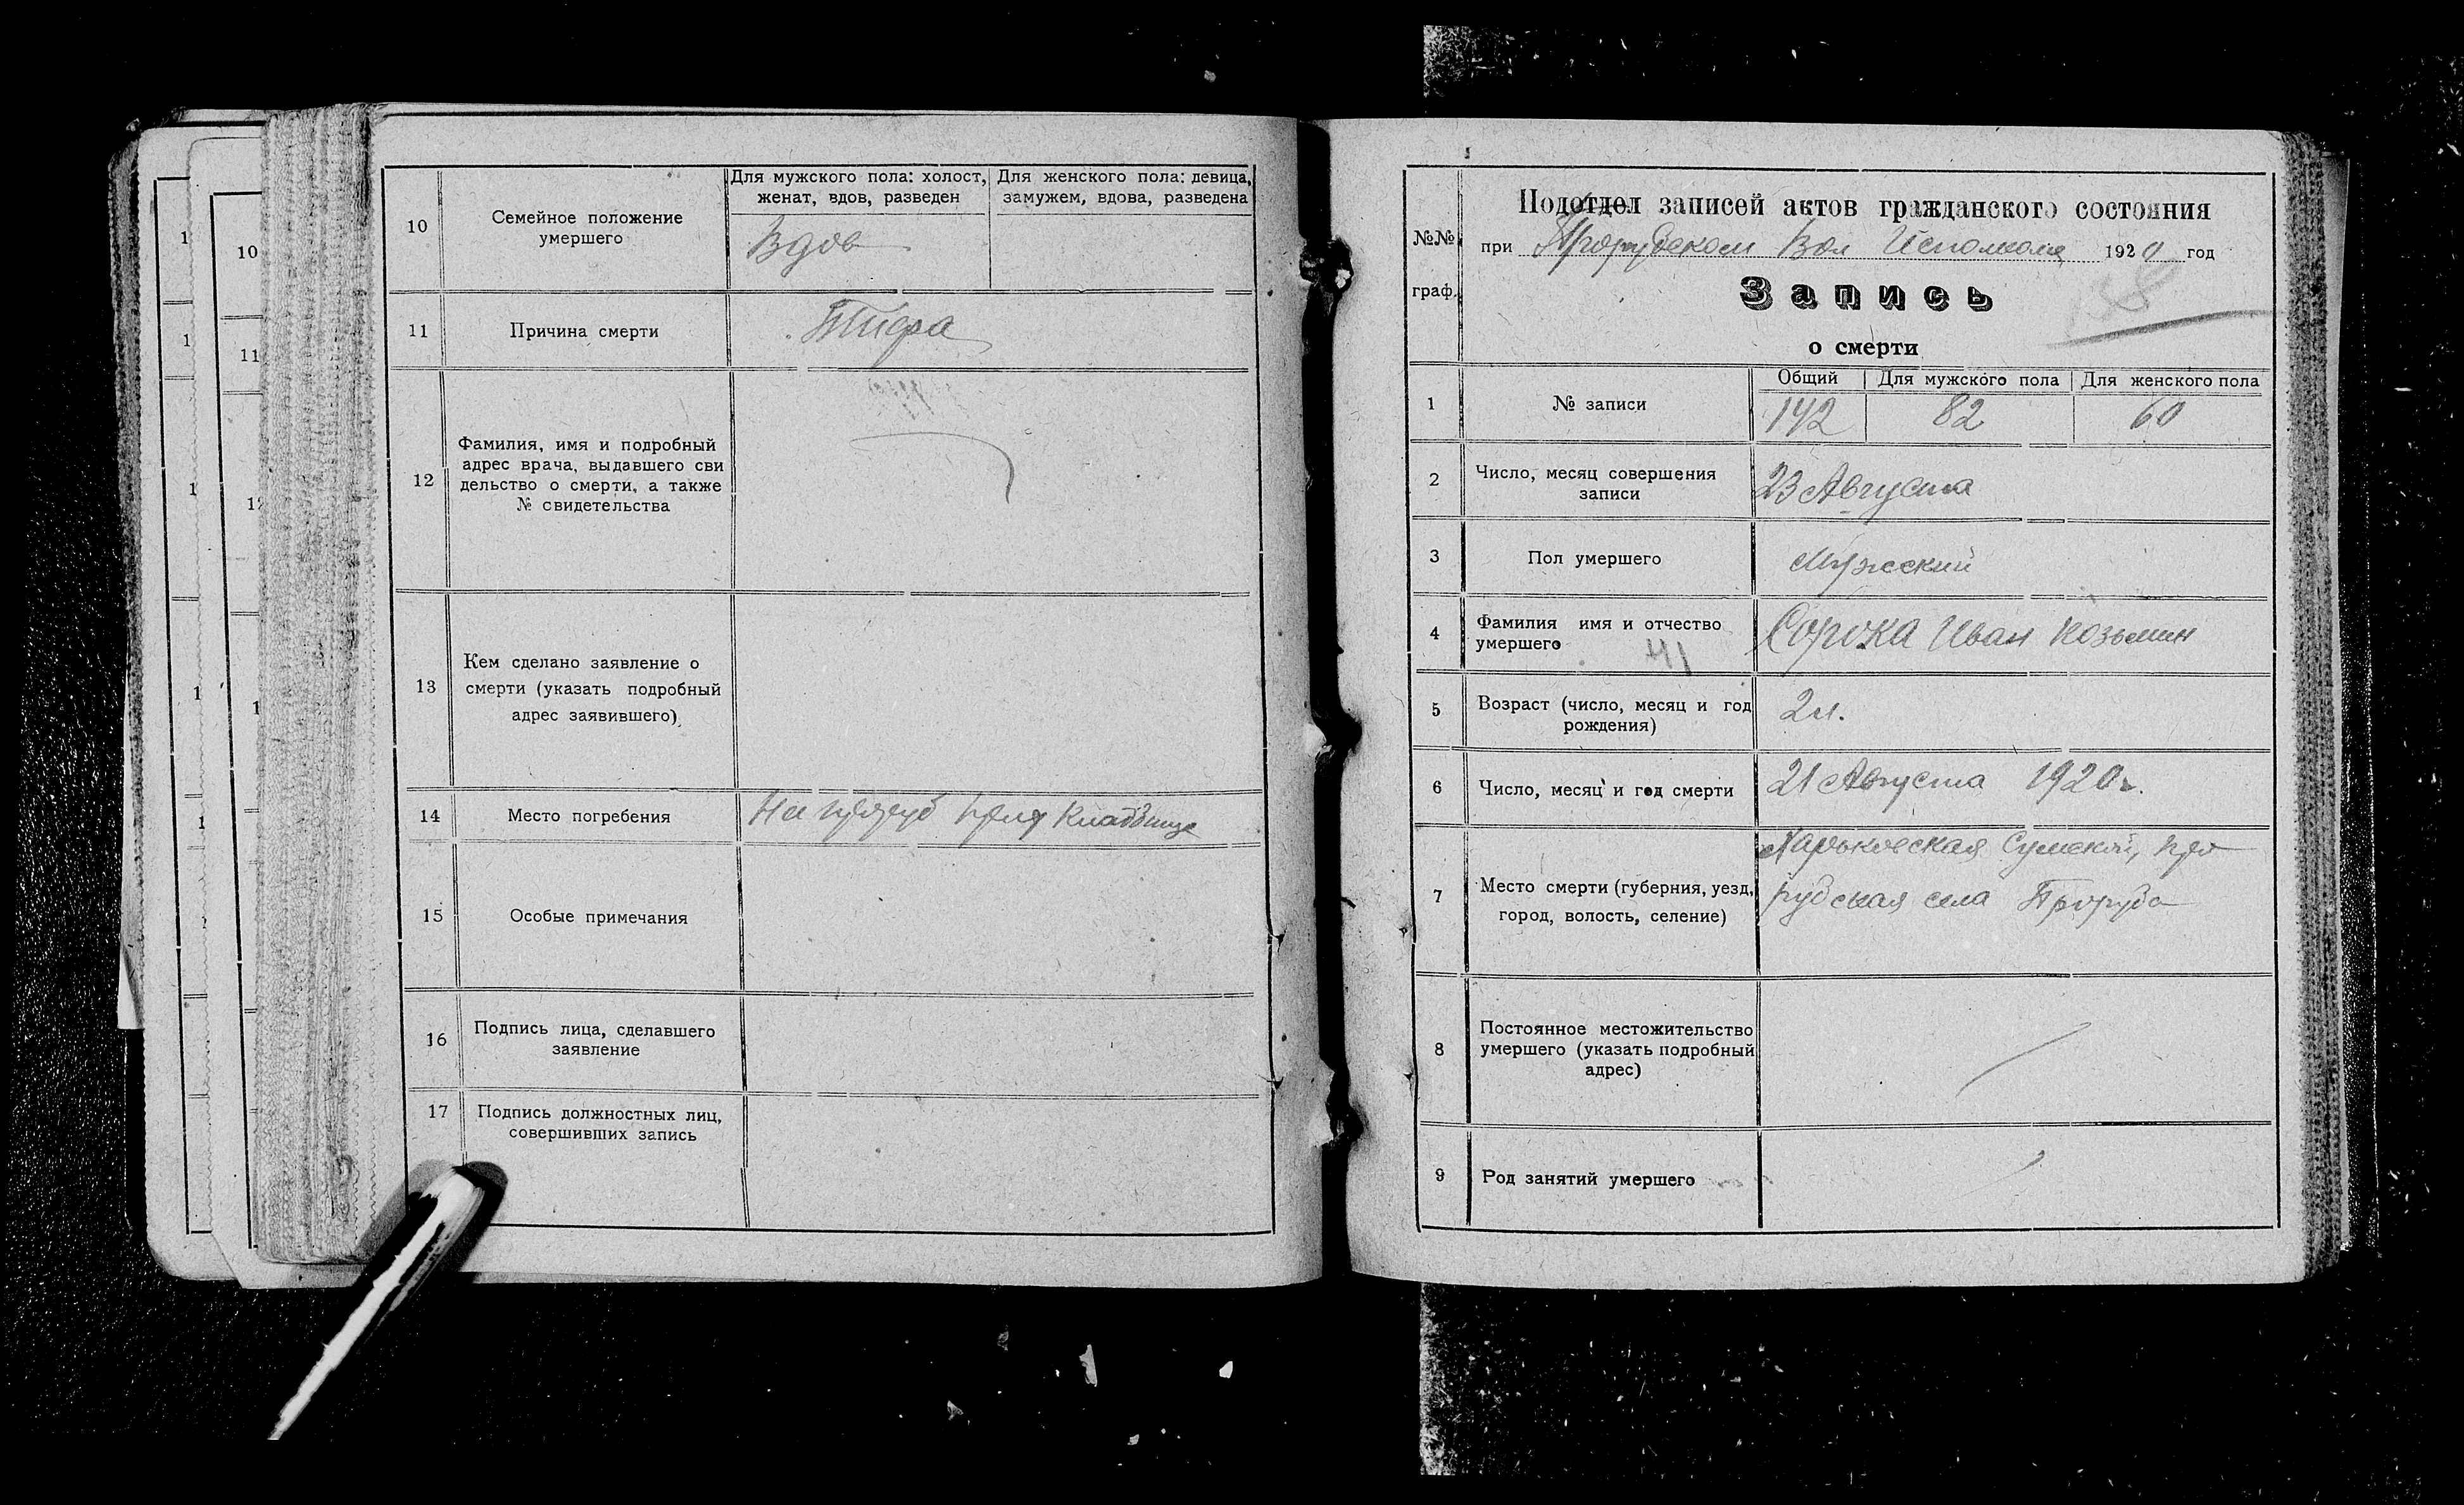 10
Семейное положение
умершего
Для мужского пола: холост,
женат, вдов, разведен
Для женского пола: девица,
замужем, вдова, разведена
Вдов
11
Причина смерти
Тифа
12
Фамилия, имя и подробный
адрес врача, выдавшего сви
дельство о смерти, а также
№ свидетельства
13
Кем сделано заявление о
смерти (указать подробный
адрес заявившего)
14
Место погребения
На кладбище
15
Особые примечания
16
Подпись лица, сделавшего
заявление
17
Подпись должностных лиц,
совершивших запись
№№
граф.
Подотдел записей актов гражданского состояния
при Прорубском Вол Исполкома 1920 год
Запись
о смерти
1
№ записи
Общий
Для мужского пола
Для женского пола
142
82
60
2
Число, месяц совершения
записи
23 Августа
3
Пол умершего
Мужской
4
Фамилия имя и отчество
умершего
41
Сорока Иван Козьмин
5
Возраст (число, месяц и год
рождения)
6
Число, месяц и год смерти
21 Августа 1920 г.
7
Место смерти (губерния, уезд,
город, волость, селение)
Харьковская Сумской, Про
рубская села Проруба
8
Постоянное местожительство
умершего (указать подробный
адрес)
9
Род занятий умершего
10
11